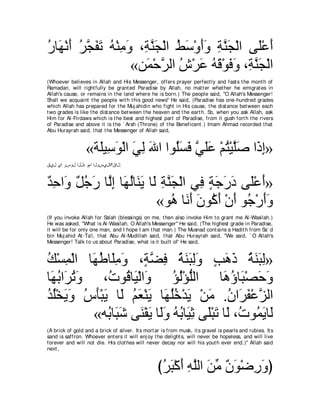 أَعْلَى الْجَنَّةِ وَأَوْسَطُ الْجَنَّةِ، وَمِنْهُ تَفَجَّرُ أَنْهَارُ
الْجَنَّةِ، وَفَوْقَهُ عَرْشُ الرَّحْمَن»
(Whoever believes in Allah and His Messenger, offers prayer perfectly and fasts the month of
Ramadan, will rightfully be granted Paradise by Allah, no matter whether he emigrates in
Allah's cause, or remains in the land where he is born.) The people said, "O Allah's Messenger!
Shall we acquaint the people with this good news" He said, (Paradise has one-hundred grades
which Allah has prepared for the Mujahidin who fight in His cause, the distance between each
two grades is like the distance between the heaven and the earth. So, when you ask Allah, ask
Him for Al-Firdaws which is the best and highest part of Paradise, from it gush forth the rivers
of Paradise and above it is the `Arsh (Throne) of the Beneficent.) Imam Ahmad recorded that
Abu Hurayrah said, that the Messenger of Allah said,
«إِذَا صَلَّيْتُمْ عَلَيَّ فَسَلُوا اللهَ لِيَ الْوَسِيلَة»
أَعْلَى دَرَجَةٍ فِي الْجَنَّةِ لَا يَنَالُهَا إِلَّا رَجُلٌ وَاحِدٌ
وَأَرْجُو أَنْ أَكُونَ أَنَا هُو»
(If you invoke Allah for Salah (blessings) on me, then also invoke Him to grant me Al-Wasilah.)
He was asked, "What is Al-Wasilah, O Allah's Messenger" He said, (The highest grade in Paradise,
it will be for only one man, and I hope I am that man.) The Musnad contains a Hadith from Sa`d
bin Mujahid At-Ta'i, that Abu Al-Mudillah said, that Abu Hurayrah said, "We said, `O Allah's
Messenger! Talk to us about Paradise, what is it built of' He said,
«لَبِنَةُ ذَهَبٍ وَلَبِنَةُ فِضَّةٍ، وَمِلَاطُهَا الْمِسْكُ
وَحَصْبَاؤُهَا اللُّؤْلُؤُ وَالْيَاقُوتُ، وَتُرَابُهَا
الزَّعْفَرَانُ. مَنْ يَدْخُلُهَا يَنْعَمُ لَا يَبْأَسُ وَيَخْلُدُ
لَا يَمُوتُ، لَا تَبْلَى ثِيَابُهُ وَلَا يَفْنَى شَبَابُه»
(A brick of gold and a brick of silver. Its mortar is from musk, its gravel is pearls and rubies. Its
sand is saffron. Whoever enters it will enjoy the delights, will never be hopeless, and will live
forever and will not die. His clothes will never decay nor will his youth ever end.)" Allah said
next,
(وَرِضْوَنٌ مِّنَ اللَّهِ أَكْبَرُ)